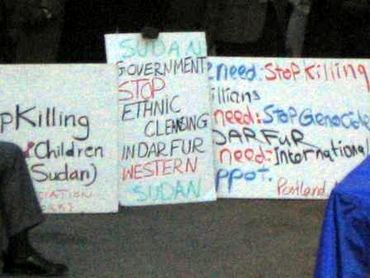 pKilling
Children
Sudan)
SUDAN
GOVERNMENT
STOP
ETHNIC
CLENSING
IN DARFUR
WESTERN
SUDAN
need: Stop Killing
illians
need: Stop Genocide
DARFUR
need: International
ppot.
Portland